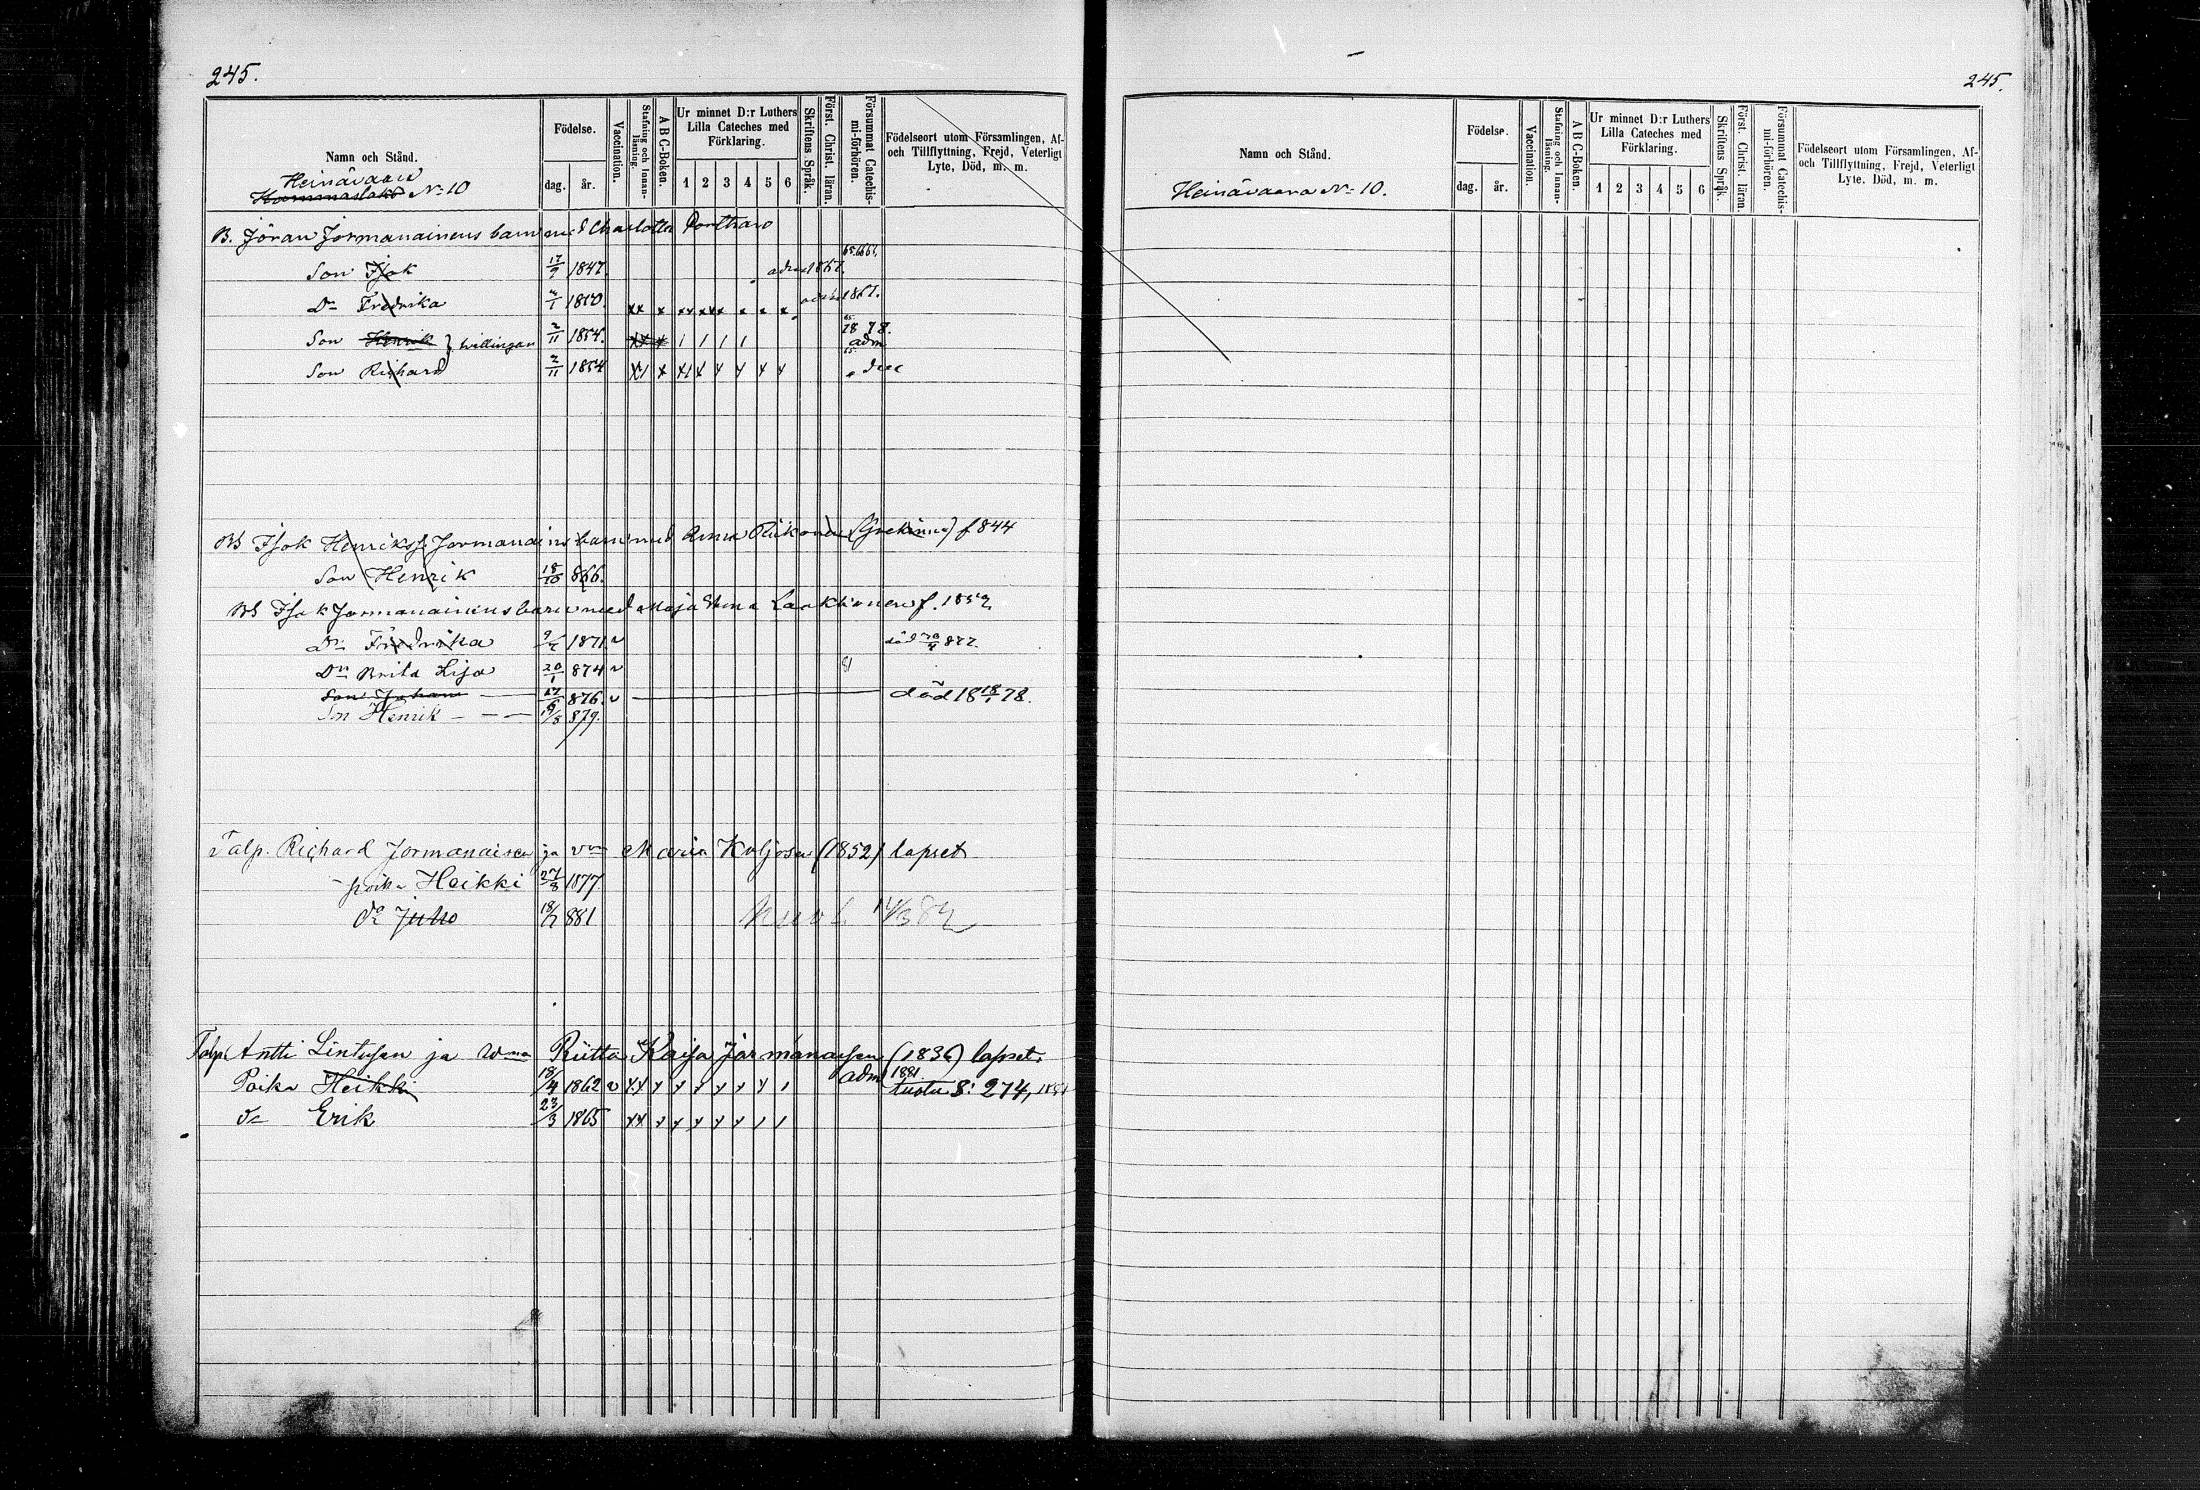 245.
Namn och Stånd.
Födelse.
dag. år.
Vaccination.
Stafning och Innanläsning.
A B C-Boken.
Ur minnet D:r Luthers Lilla Cateches med Förklaring.
1 2 3 4 5 6
Skriftens Språk.
Först. Christ. läran.
Försummat Catechismi-förhören.
Födelseort utom Församlingen, Af- och Tillflyttning, Frejd, Veterligt Lyte, Död, m. m.
Heinävaara
N:o 10
B. Jöran Jormanainens barn med Charlotta
Son Isak 17/9 1847. adm 1867.
Dr Fredrika 1850. 1867.
Son Henrik } tvillingar 2/11 1854. 1878. adm
Son Richard 2/11 1854
Isak Henrikss. Jormanainens barn med Anna f 844
Son Henrik 18/10 866.
Isak Jormanainens barn med Maja Stina Laakkonen f. 1852
Dr Fredrika 1871. död 877.
Dr Brita Lisa 20/1 874 81
Son Johan 876. död 18 18/1 78.
Son Henrik 19/8 879.
Talp. Richard Jormanaisen ja vmon Maria Koljosen (1852) lapset
poika Heikki 27/8 1877
do Juho 18/7 881 kuoli 14/3 82
Talp. Antti Lintusen ja vmon Riitta Kaisa Jormanaisen (1836) lapset.
Poika Heikki 18/4 1862 adm 1881 S: 274,
do Erik 23/3 1865
245.
Namn och Stånd.
Födelse.
dag. år.
Vaccination.
Stafning och Innanläsning.
A B C-Boken.
Ur minnet D:r Luthers Lilla Cateches med Förklaring.
1 2 3 4 5 6
Skriftens Språk.
Först. Christ. läran.
Försummat Catechismi-förhören.
Födelseort utom Församlingen, Af- och Tillflyttning, Frejd, Veterligt Lyte, Död, m. m.
Heinävaara N:o 10.